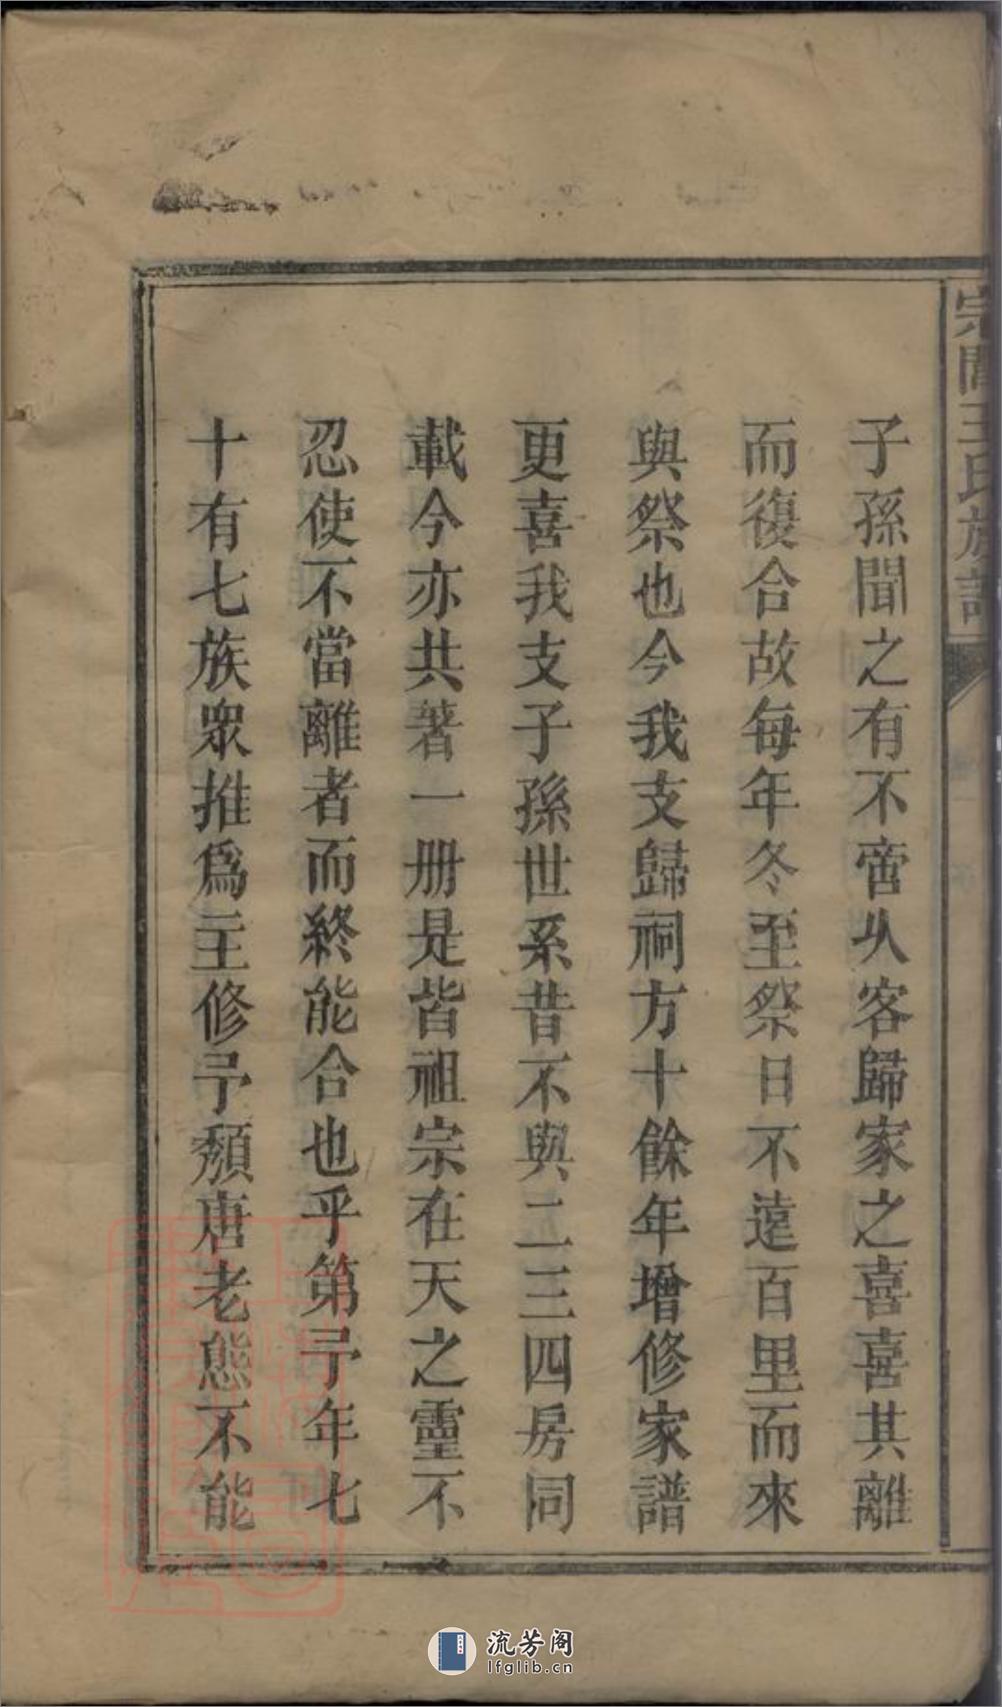 宗間王氏族譜
子孫聞之有不啻久客歸家之喜喜其離
而復合故每年冬至祭日不遠百里而來
與祭也今我支歸祠方十餘年增修家譜
更喜我支子孫世系昔不與二三四房同
載今亦共著一册是皆祖宗在天之靈不
忍使不當離者而終能合也乎第予年七
十有七族眾推爲主修予頽唐老態不能
流芳阁
lfglib.cn